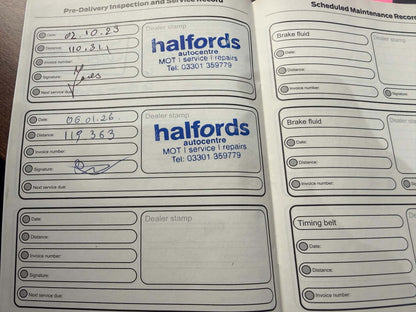 Pre-Delivery Inspection and Service Record
Date: 02.10.23
Distance: 110.311
Invoice number:
Signature:
Next service due:
Dealer stamp
halfords
autocentre
MOT | service | repairs
Tel: 03301 359779
Date: 06.01.26.
Distance: 119 363
Invoice number:
Signature:
Next service due:
Dealer stamp
halfords
autocentre
MOT | service | repairs
Tel: 03301 359779
Date:
Distance:
Invoice number:
Signature:
Next service due:
Dealer stamp
Scheduled Maintenance Record
Brake fluid
Date:
Distance:
Invoice number:
Brake fluid
Date:
Distance:
Invoice number:
Timing belt
Date:
Distance:
Invoice number: